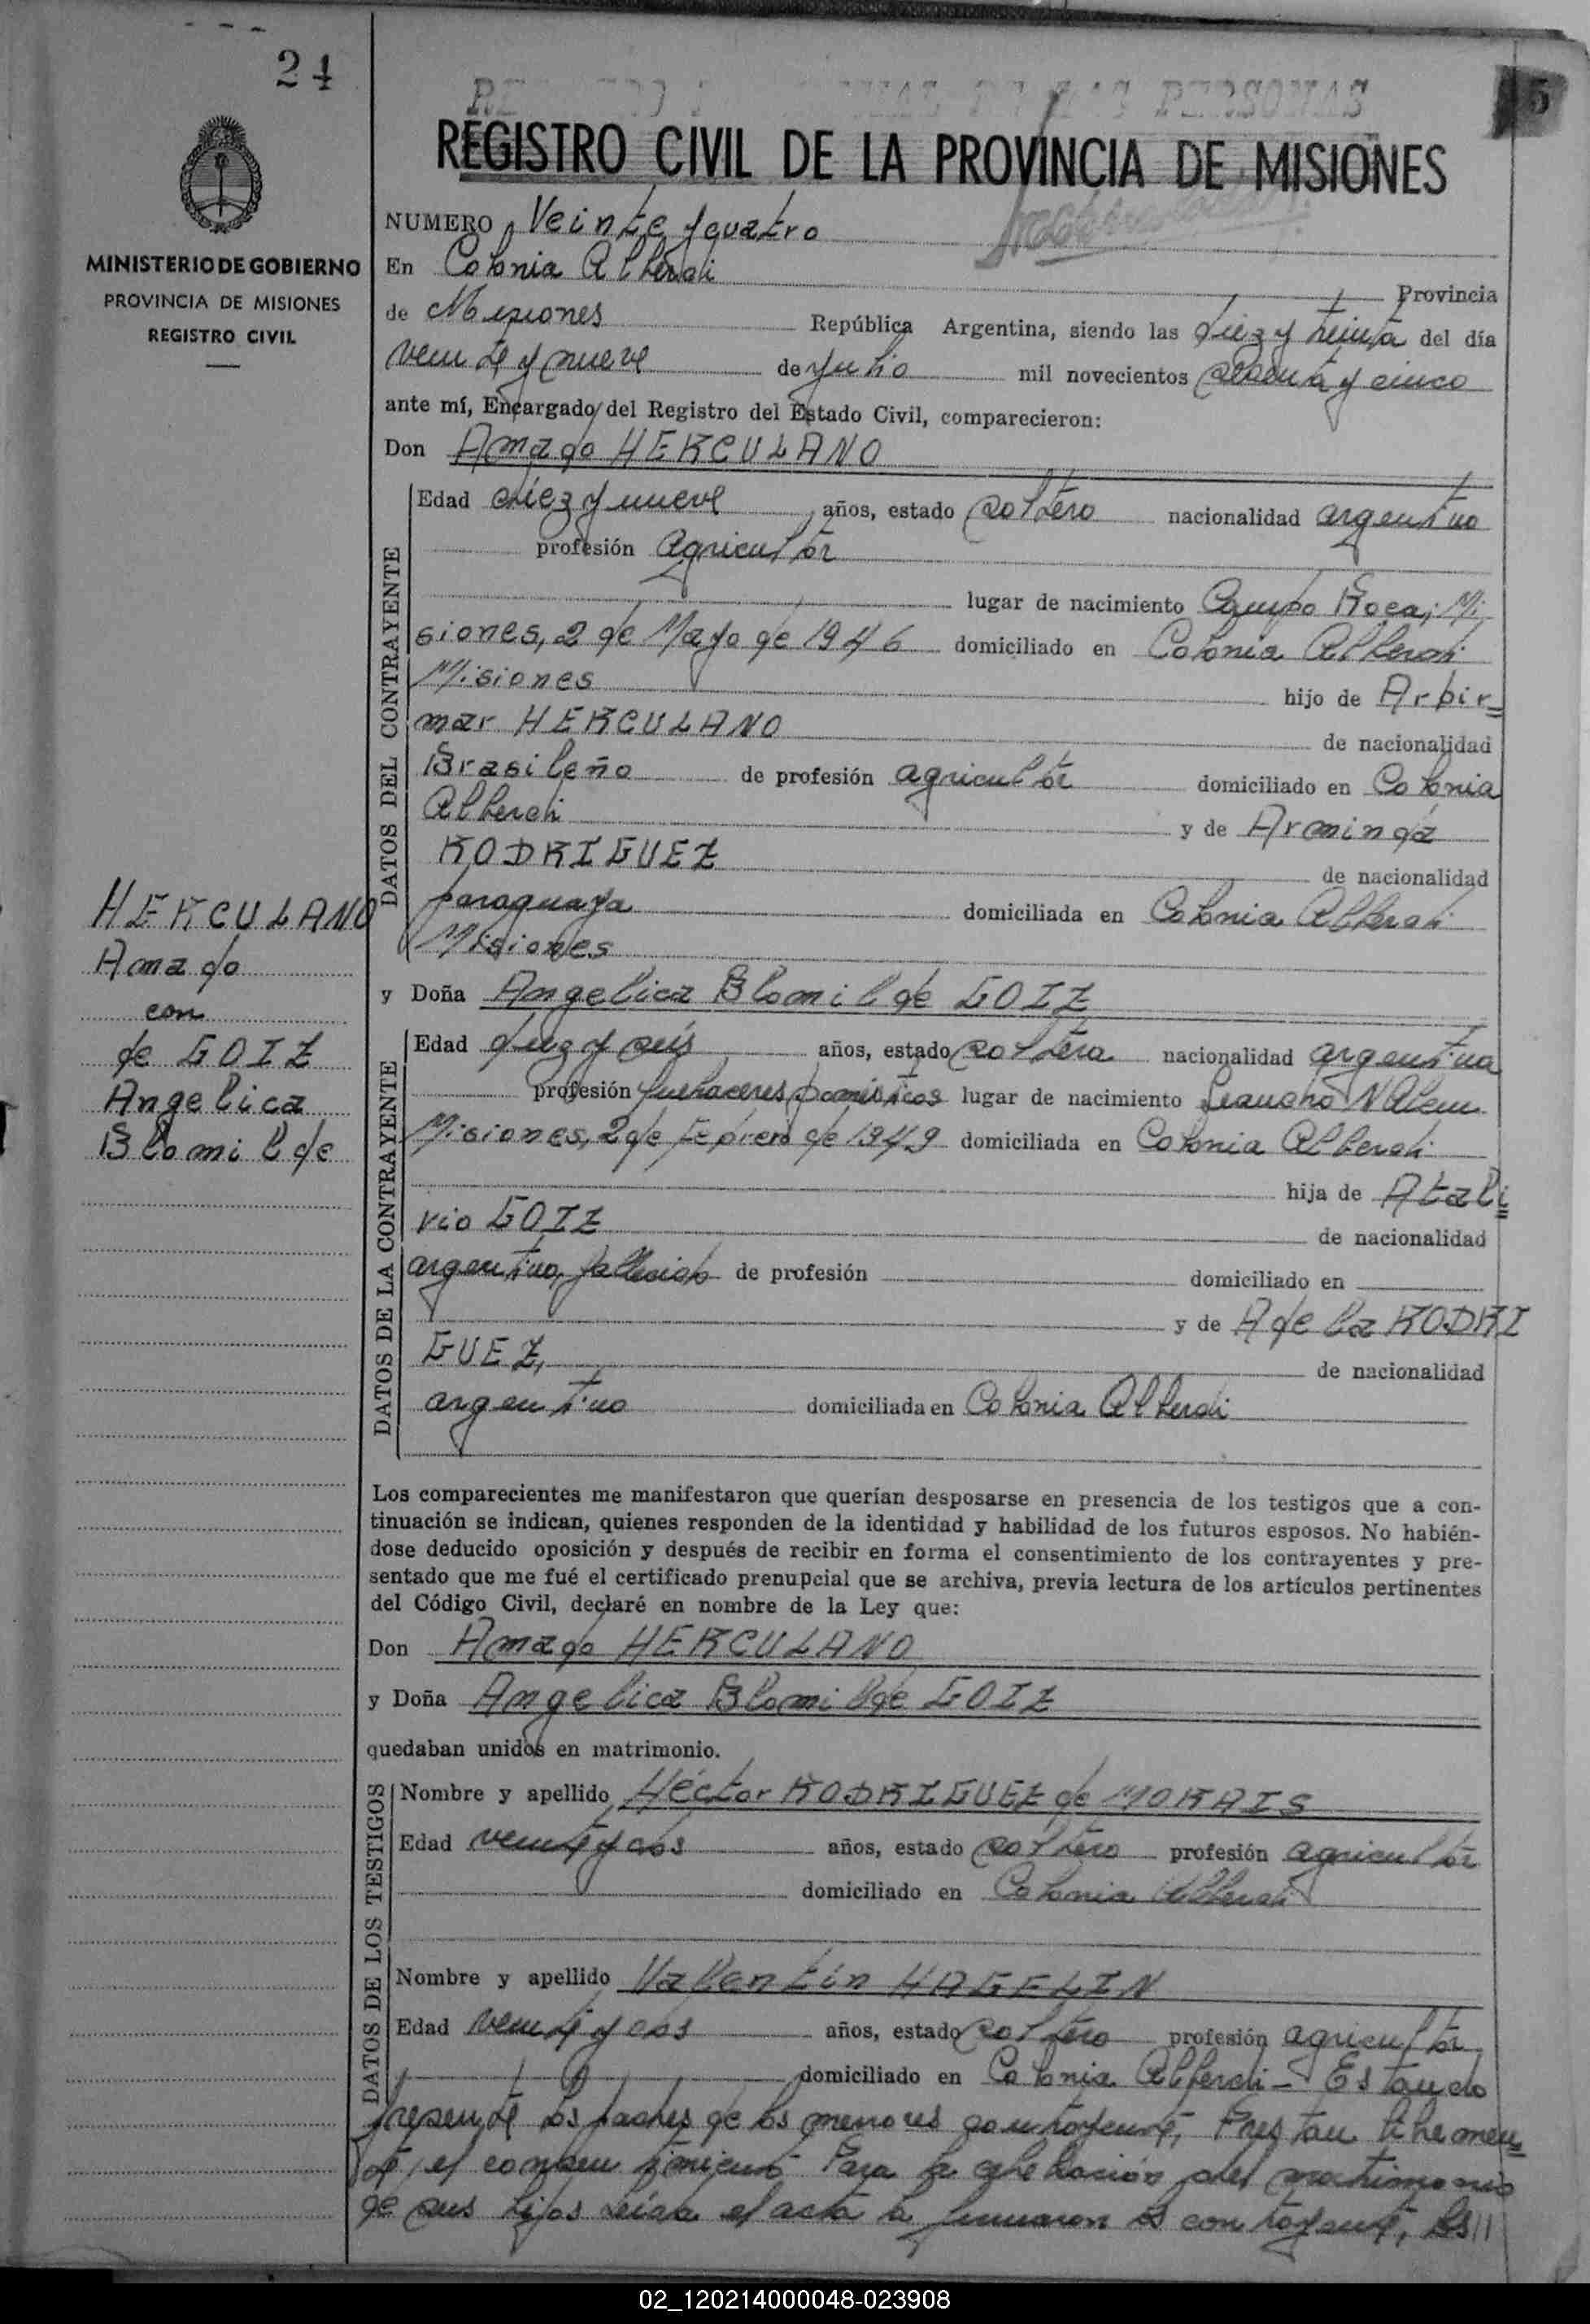 24
5
REGISTRO CIVIL DE LA PROVINCIA DE MISIONES
MINISTERIO DE GOBIERNO
PROVINCIA DE MISIONES
REGISTRO CIVIL
NUMERO Veinte y cuatro
En Colonia Alberdi Provincia
de Misiones República Argentina, siendo las diez y treinta del día
veinte y nueve de Julio mil novecientos sesenta y cinco
ante mí, Encargado del Registro del Estado Civil, comparecieron:
Don Amado HERCULANO
DATOS DEL CONTRAYENTE
Edad diez y nueve años, estado soltero nacionalidad argentino
profesión agricultor
lugar de nacimiento Campo Roca, Mi
siones, 2 de Mayo de 1946 domiciliado en Colonia Alberdi
Misiones hijo de Arbir=
mar HERCULANO de nacionalidad
Brasileño de profesión agricultor domiciliado en Colonia
Alberdi y de Arminda
RODRIGUEZ de nacionalidad
paraguaya domiciliada en Colonia Alberdi
Misiones
HERCULANO
Amado
con
de GOIZ
Angelica
Blomilde
y Doña Angelica Blomilde GOIZ
DATOS DE LA CONTRAYENTE
Edad diez y seis años, estado soltera nacionalidad argentina
profesión quehaceres domésticos lugar de nacimiento Leandro N Alem
Misiones, 2 de Febrero de 1949 domiciliada en Colonia Alberdi
hija de Atali
vio GOIZ de nacionalidad
argentino, fallecido de profesión domiciliado en
y de Adela RODRI
GUEZ, de nacionalidad
argentino domiciliada en Colonia Alberdi
Los comparecientes me manifestaron que querían desposarse en presencia de los testigos que a con-
tinuación se indican, quienes responden de la identidad y habilidad de los futuros esposos. No habién-
dose deducido oposición y después de recibir en forma el consentimiento de los contrayentes y pre-
sentado que me fué el certificado prenupcial que se archiva, previa lectura de los artículos pertinentes
del Código Civil, declaré en nombre de la Ley que:
Don Amado HERCULANO
y Doña Angelica Blomilde GOIZ
quedaban unidos en matrimonio.
DATOS DE LOS TESTIGOS
Nombre y apellido Héctor RODRIGUEZ de MORAIS
Edad veinte y dos años, estado soltero profesión agricultor
domiciliado en Colonia Alberdi
Nombre y apellido Valentín HAGELIN
Edad veinte y dos años, estado soltero profesión agricultor
domiciliado en Colonia Alberdi - Estando
presente los padres de los menores contrayente, Prestan libremen=
te, el consentimiento Para la celebración del matrimonio
de sus hijos Leída el acta la firmaron los contrayente, los //
02_120214000048-023908